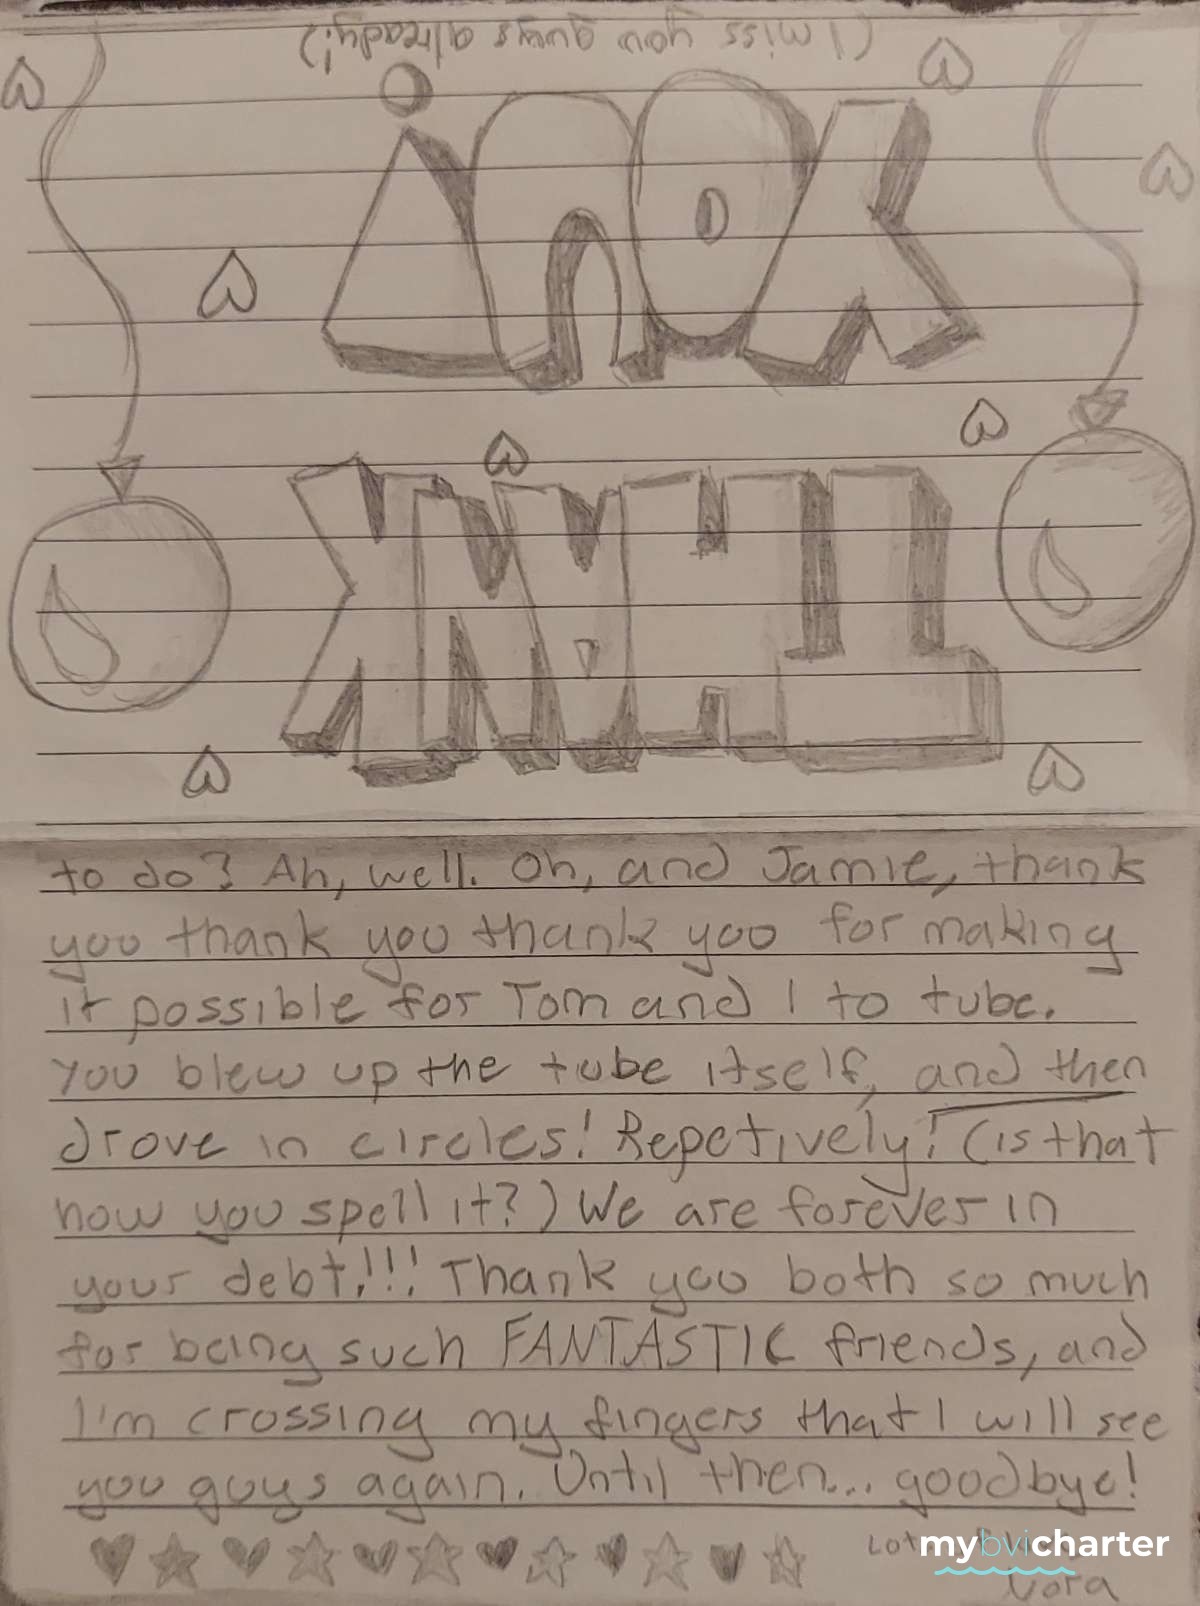 (I miss you guys already!)
YOU!
THANK
to do? Ah, well. Oh, and Jamie, thank
you thank you thank you for making
it possible for Tom and I to tube.
You blew up the tube itself, and then
drove in circles! Repetively! (is that
how you spell it?) We are forever in
your debt!!! Thank you both so much
for being such FANTASTIC friends, and
I'm crossing my fingers that I will see
you guys again. Until then... goodbye!
mybvicharter
Nora